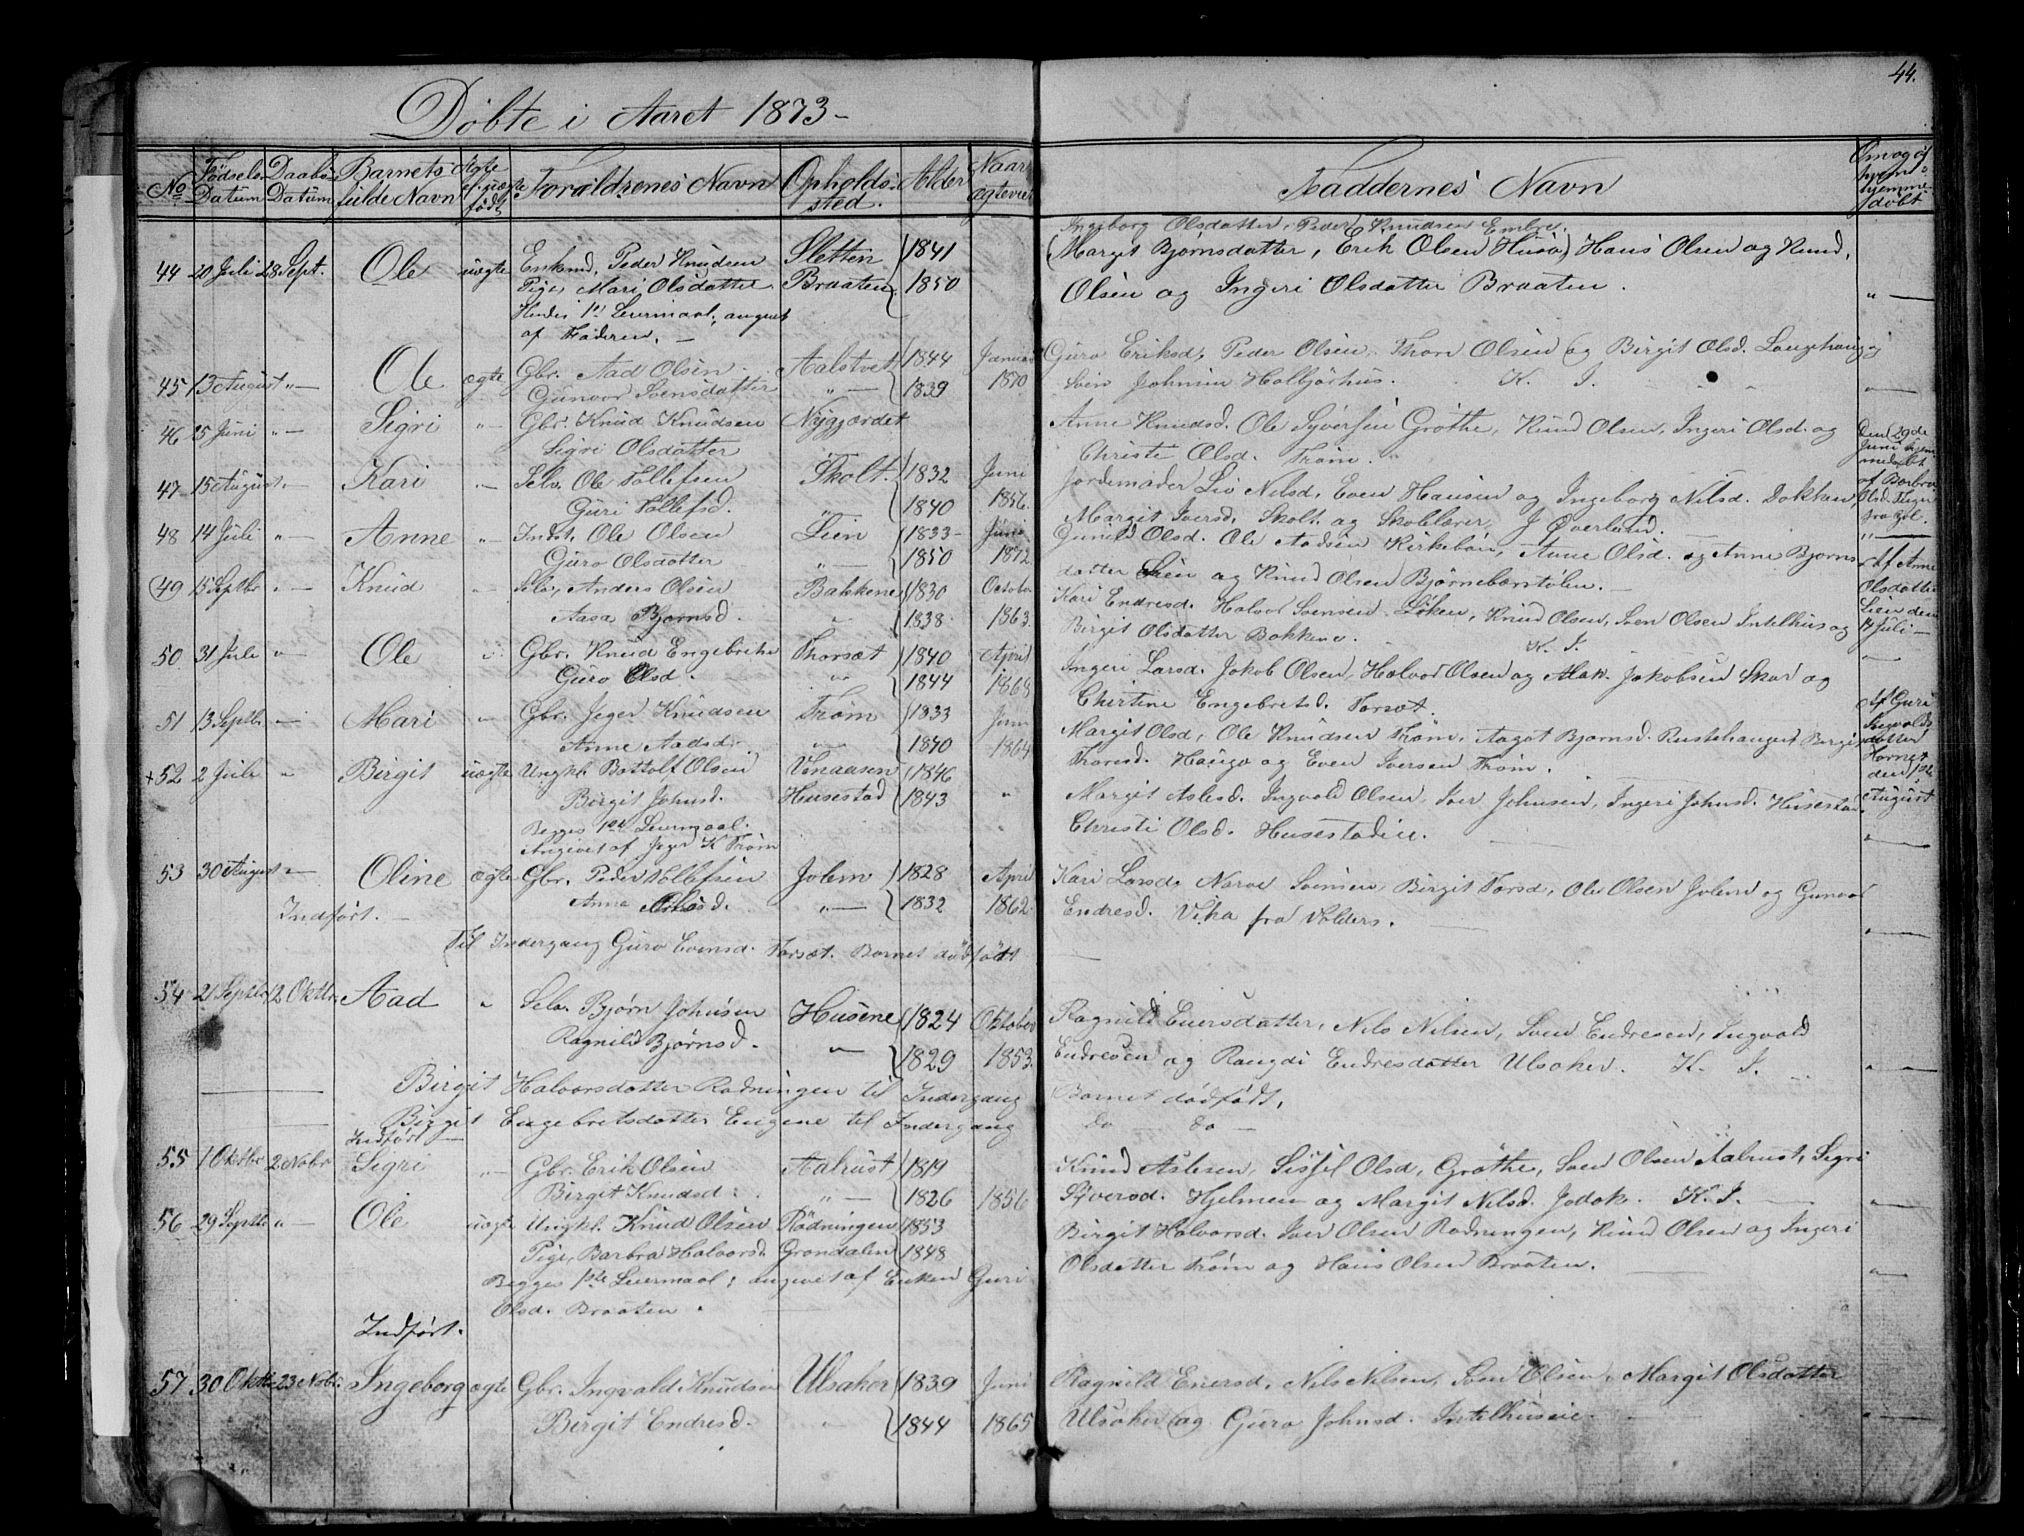 44.
Döbte i Aaret 1873-
No Födsels Datum Daabs Datum Barnets fulde Navn Ægte el. uægte födt Forældrenes Navn Opholds sted. Alder Naar ægteviet Faddernes Navn Om og af hvem hjemme döbt
Ingeborg Olsdatter, Peder Knudsen Embre.
44 20 Juli 28 Sept. Ole uægte Enkmd. Peder Knudsen Sletten 1841 (Margit Bjørnsdatter, Erik Olsen Huso) Hans Olsen og Knud
Pige Mari Olsdatter Braaten 1850 Olsen og Ingeri Olsdatter Braaten. " —
Hendes 1ste Leiermaal, angivet
af Faderen. —
45 13 August " — Ole ægte Gbr. Aad Olsen Aalstvet 1844 Januar Guro Eriksd. Peder Olsen, Thor Olsen og Birgit Olsd. Langehaug og
Gunvor Svensdatter " — 1839 1870 Sven Johnsen Halbjørhus. K. J.
46 25 Juni " — Sigri " Gbr. Knud Knudsen Nygjærdet Anne Knudsd. Ole Syversen Grøthe, Knud Olsen, Ingeri Olsd. og Den 29de Juni hjemmedøbt
Sigri Olsdatter Christi Olsd. Trøm. af Barbro Olsd.
47 15 August " — Kari " Selv. Ole Tollefsen Skolt. 1832 Juni Jordemoder Liv Nilsd, Even Hansen og Ingeborg Nilsd. Dokken,
Guri Tollefsd. " 1840 1856. Margit Iversd. Skolt. og Skolelærer J Øverlund.
48 14 Juli " — Anne " Indst. Ole Olsen Lien 1833 Juni Gunild Olsd. Ole Aadsen Kirkebøn, Anne Olsd. og Anne Bjørns Af Anne
Guro Olsdatter " — 1850 1872 datter Lien og Knud Olsen Bjørnebærstølen. — Olsdatter Lien den 14 Juli —
49 15 Septbr " — Knud " Selv. Anders Olsen Bakkene 1830 October Kari Endresd. Halvor Svensen Løken, Knud Olsen, Sven Olsen Intelhus og
Aasa Bjørnsd. " 1838 1863. Birgit Olsdatter Bakkene. K. J.
50 31 Juli " Ole " Gbr. Knud Engebrets. Thorsæt 1840 April Ingeri Larsd. Jakob Olsen, Halvor Olsen og Jakobsen Skar og
Guro Olsd. " 1844 1868 Christine Engebretsd. Torsæt.
51 13 Septbr " — Mari " Gbr. Jeger Knudsen Trøm 1833 Juni Margit Olsd, Ole Knudsen Trøm, Aagot Bjørnsd. Rustehaugen, Birgit Af Guri
Anne Aadsd. " 1840 1864 Toresd. Haugo og Even Iversen Trøm. datter den 1ste August
+52 2 Juli " Birgit uægte Ungkl. Bottolf Olsen 1846 Margit Aslesd. Ingvald Olsen, Iver Johnsen, Ingeri Johnsd. Husestad
Birgit Johnsd. Husestad 1843 " Christi Olsd. Husestadeie.
Begges 1ste Leiermaal.
Angivet af Jeger K Trøm
53 30 August " — Oline ægte Gbr. Peder Tollefsen Jolem 1828 April Kari Larsd. Narve Svensen, Birgit Torsd, Ole Olsen Jolem og Gunvor
Anna Olsd. " — 1832 1862. Endresd. Vika fra Valders.
Indført. —
Til Indergang Guro Evensd. Torsæt. Barnet dødfødt —
54 21 Septbr 12 Oktbr. Aad " Selv. Bjørn Johnsen Husene 1824 Oktober Ragnild Eversdatter, Nils Nilsen, Sven Endresen, Ingvald
Ragnild Bjørnsd. " 1829 1853. Endresen og Rangdi Endresdatter Ulsaker. K. J. " —
— Birgit Halvorsdatter Rødningen til Indergang Barnet dødfødt,
— Birgit Engebretsdatter Eugene til Indergang do do —
Indført —
55 1 Oktbr 2 Nobr Sigri " — Gbr. Erik Olsen Aalrust 1819 Knud Aslesen, Sissel Olsd, Grøthe, Sven Olsen Aalrust, Sigri
Birgit Knudsd. " — 1826 1856 Syversd. Hjelmen og Margit Nilsd. Jodok. K. J. —
56 29 Septbr " — Ole uægte Ungkl. Knud Olsen Rødningen 1853 Birgit Halvorsd. Iver Olsen Rødningen, Knud Olsen og Ingeri
Pige, Barbra Halvorsd. Grøndalen 1848 Olsdatter Trøm og Hans Olsen Braaten.
Begges 1ste Leiermaal; angivet af Enken Guri
Olsd. Braaten.
Indført.
57 30 Oktbr 23 Nobr. Ingeborg ægte Gbr. Ingvald Knudsen Ulsaker 1839 Juni Ragnild Eversd. Nils Nilsen, Sven Olsen, Margit Olsdatter
Birgit Endresd. " 1844 1865 Ulsaker og Guro Johnsd. Intelhuseie.